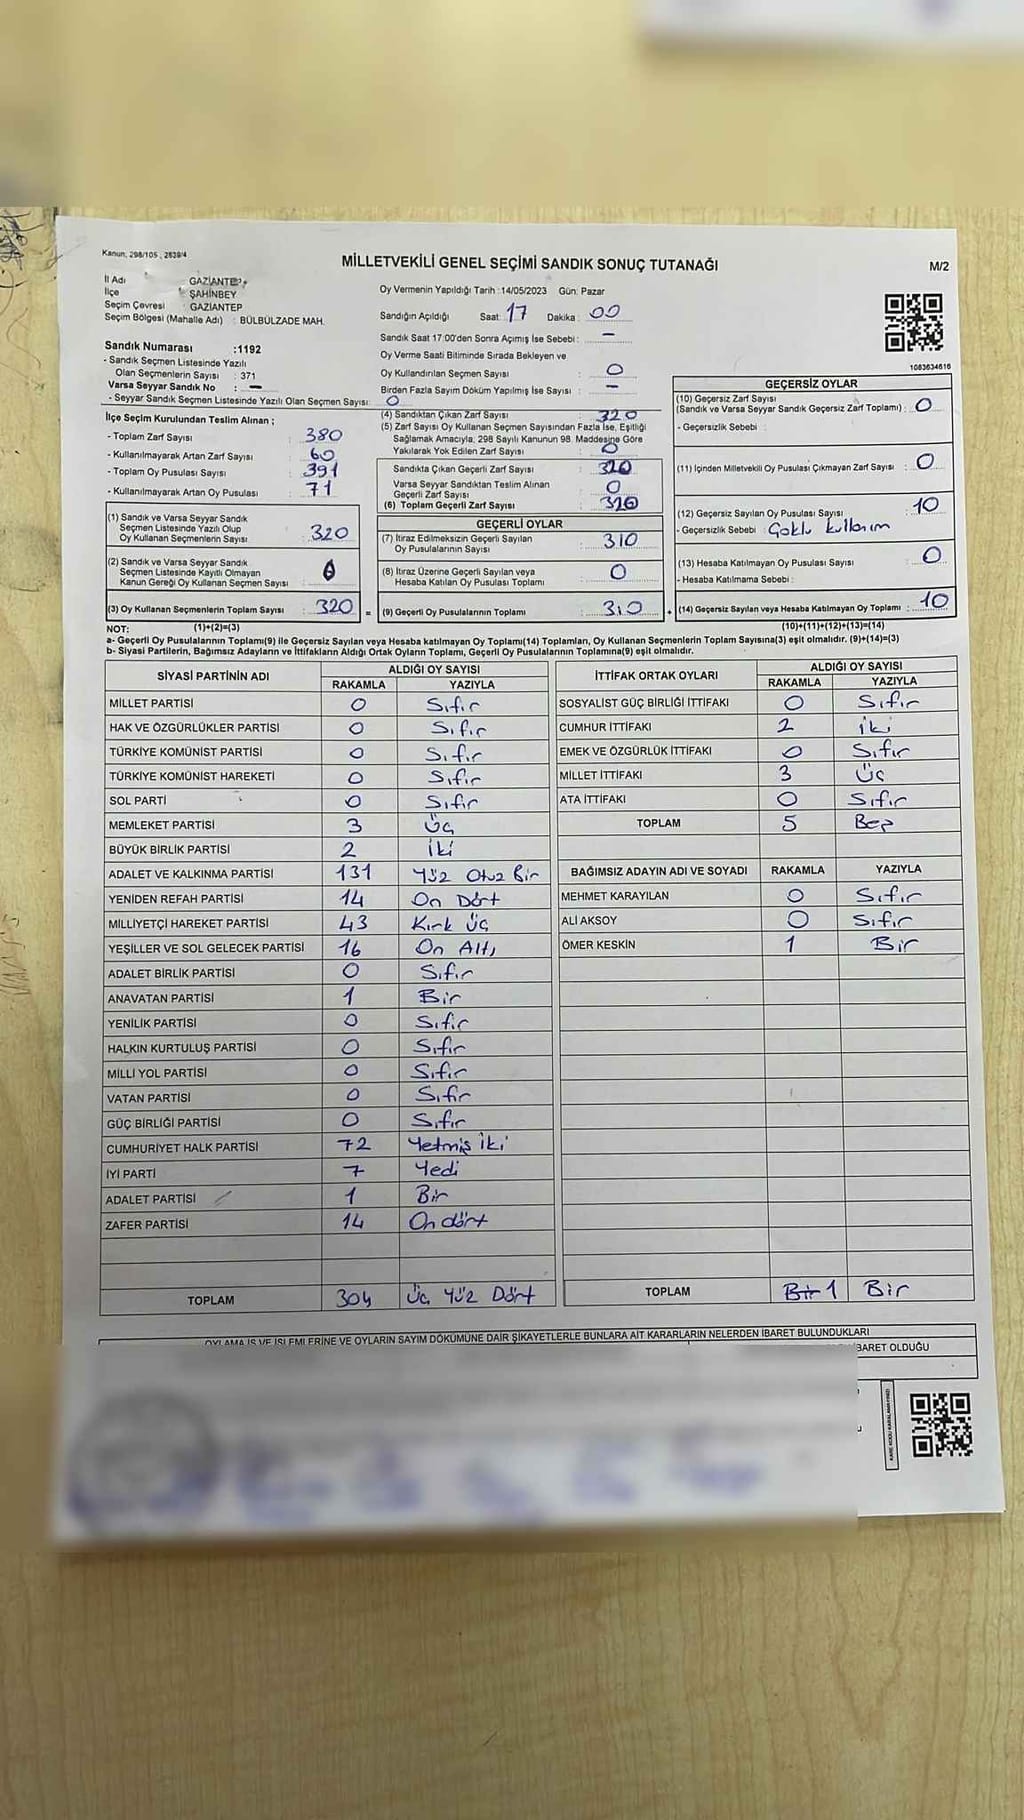 Kanun, 298/105 , 2839/4
MİLLETVEKİLİ GENEL SEÇİMİ SANDIK SONUÇ TUTANAĞI
M/2
İl Adı GAZİANTEP
İlçe ŞAHİNBEY
Seçim Çevresi GAZİANTEP
Seçim Bölgesi (Mahalle Adı) : BÜLBÜLZADE MAH.
Sandık Numarası :1192
- Sandık Seçmen Listesinde Yazılı
Olan Seçmenlerin Sayısı : 371
Varsa Seyyar Sandık No : -
- Seyyar Sandık Seçmen Listesinde Yazılı Olan Seçmen Sayısı: 0
Oy Vermenin Yapıldığı Tarih :14/05/2023 Gün: Pazar
Sandığın Açıldığı Saat: 17 Dakika : 00
Sandık Saat 17:00'den Sonra Açımış İse Sebebi : -
Oy Verme Saati Bitiminde Sırada Bekleyen ve
Oy Kullandırılan Seçmen Sayısı : 0
Birden Fazla Sayım Döküm Yapılmış İse Sayısı : -
1083634616
İlçe Seçim Kurulundan Teslim Alınan ;
- Toplam Zarf Sayısı : 380
- Kullanılmayarak Artan Zarf Sayısı : 60
- Toplam Oy Pusulası Sayısı : 391
- Kullanılmayarak Artan Oy Pusulası : 71
(1) Sandık ve Varsa Seyyar Sandık
Seçmen Listesinde Yazılı Olup
Oy Kullanan Seçmenlerin Sayısı : 320
(2) Sandık ve Varsa Seyyar Sandık
Seçmen Listesinde Kayıtlı Olmayan
Kanun Gereği Oy Kullanan Seçmen Sayısı : 0
(3) Oy Kullanan Seçmenlerin Toplam Sayısı : 320 =
(1)+(2)=(3)
(4) Sandıktan Çıkan Zarf Sayısı : 320
(5) Zarf Sayısı Oy Kullanan Seçmen Sayısından Fazla İse, Eşitliği
Sağlamak Amacıyla, 298 Sayılı Kanunun 98. Maddesine Göre
Yakılarak Yok Edilen Zarf Sayısı : 0
Sandıkta Çıkan Geçerli Zarf Sayısı : 320
Varsa Seyyar Sandıktan Teslim Alınan
Geçerli Zarf Sayısı : 0
(6) Toplam Geçerli Zarf Sayısı : 320
GEÇERLİ OYLAR
(7) İtiraz Edilmeksizin Geçerli Sayılan
Oy Pusulalarının Sayısı : 310
(8) İtiraz Üzerine Geçerli Sayılan veya
Hesaba Katılan Oy Pusulası Toplamı : 0
(9) Geçerli Oy Pusulalarının Toplamı : 310 +
GEÇERSİZ OYLAR
(10) Geçersiz Zarf Sayısı
(Sandık ve Varsa Seyyar Sandık Geçersiz Zarf Toplamı) : 0
- Geçersizlik Sebebi :
(11) İçinden Milletvekili Oy Pusulası Çıkmayan Zarf Sayısı : 0
(12) Geçersiz Sayılan Oy Pusulası Sayısı : 10
- Geçersizlik Sebebi : Çoklu kullanım
(13) Hesaba Katılmayan Oy Pusulası Sayısı : 0
- Hesaba Katılmama Sebebi :
(14) Geçersiz Sayılan veya Hesaba Katılmayan Oy Toplamı : 10
(10)+(11)+(12)+(13)=(14)
NOT:
a- Geçerli Oy Pusulasının Toplamı(9) ile Geçersiz Sayılan veya Hesaba katılmayan Oy Toplamı(14) Toplamları, Oy Kullanan Seçmenlerin Toplam Sayısına(3) eşit olmalıdır. (9)+(14)=(3)
b- Siyasi Partilerin, Bağımsız Adayların ve İttifakların Aldığı Ortak Oyların Toplamı, Geçerli Oy Pusulalarının Toplamına(9) eşit olmalıdır.
SİYASİ PARTİNİN ADI ALDIĞI OY SAYISI
RAKAMLA YAZIYLA
MİLLET PARTİSİ 0 Sıfır
HAK VE ÖZGÜRLÜKLER PARTİSİ 0 Sıfır
TÜRKİYE KOMÜNİST PARTİSİ 0 Sıfır
TÜRKİYE KOMÜNİST HAREKETİ 0 Sıfır
SOL PARTİ 0 Sıfır
MEMLEKET PARTİSİ 3 Üç
BÜYÜK BİRLİK PARTİSİ 2 İki
ADALET VE KALKINMA PARTİSİ 131 Yüz Otuz Bir
YENİDEN REFAH PARTİSİ 14 On Dört
MİLLİYETÇİ HAREKET PARTİSİ 43 Kırk Üç
YEŞİLLER VE SOL GELECEK PARTİSİ 16 On Altı
ADALET BİRLİK PARTİSİ 0 Sıfır
ANAVATAN PARTİSİ 1 Bir
YENİLİK PARTİSİ 0 Sıfır
HALKIN KURTULUŞ PARTİSİ 0 Sıfır
MİLLİ YOL PARTİSİ 0 Sıfır
VATAN PARTİSİ 0 Sıfır
GÜÇ BİRLİĞİ PARTİSİ 0 Sıfır
CUMHURİYET HALK PARTİSİ 72 Yetmiş İki
İYİ PARTİ 7 Yedi
ADALET PARTİSİ 1 Bir
ZAFER PARTİSİ 14 On dört
TOPLAM 304 Üç Yüz Dört
İTTİFAK ORTAK OYLARI ALDIĞI OY SAYISI
RAKAMLA YAZIYLA
SOSYALİST GÜÇ BİRLİĞİ İTTİFAKI 0 Sıfır
CUMHUR İTTİFAKI 2 İki
EMEK VE ÖZGÜRLÜK İTTİFAKI 0 Sıfır
MİLLET İTTİFAKI 3 Üç
ATA İTTİFAKI 0 Sıfır
TOPLAM 5 Beş
BAĞIMSIZ ADAYIN ADI VE SOYADI RAKAMLA YAZIYLA
MEHMET KARAYILAN 0 Sıfır
ALİ AKSOY 0 Sıfır
ÖMER KESKİN 1 Bir
TOPLAM Bir 1 Bir
OYLAMA İŞ VE İŞLEMLERİNE VE OYLARIN SAYIM DÖKÜMÜNE DAİR ŞİKAYETLERLE BUNLARA AİT KARARLARIN NELERDEN İBARET BULUNDUKLARI
İBARET OLDUĞU